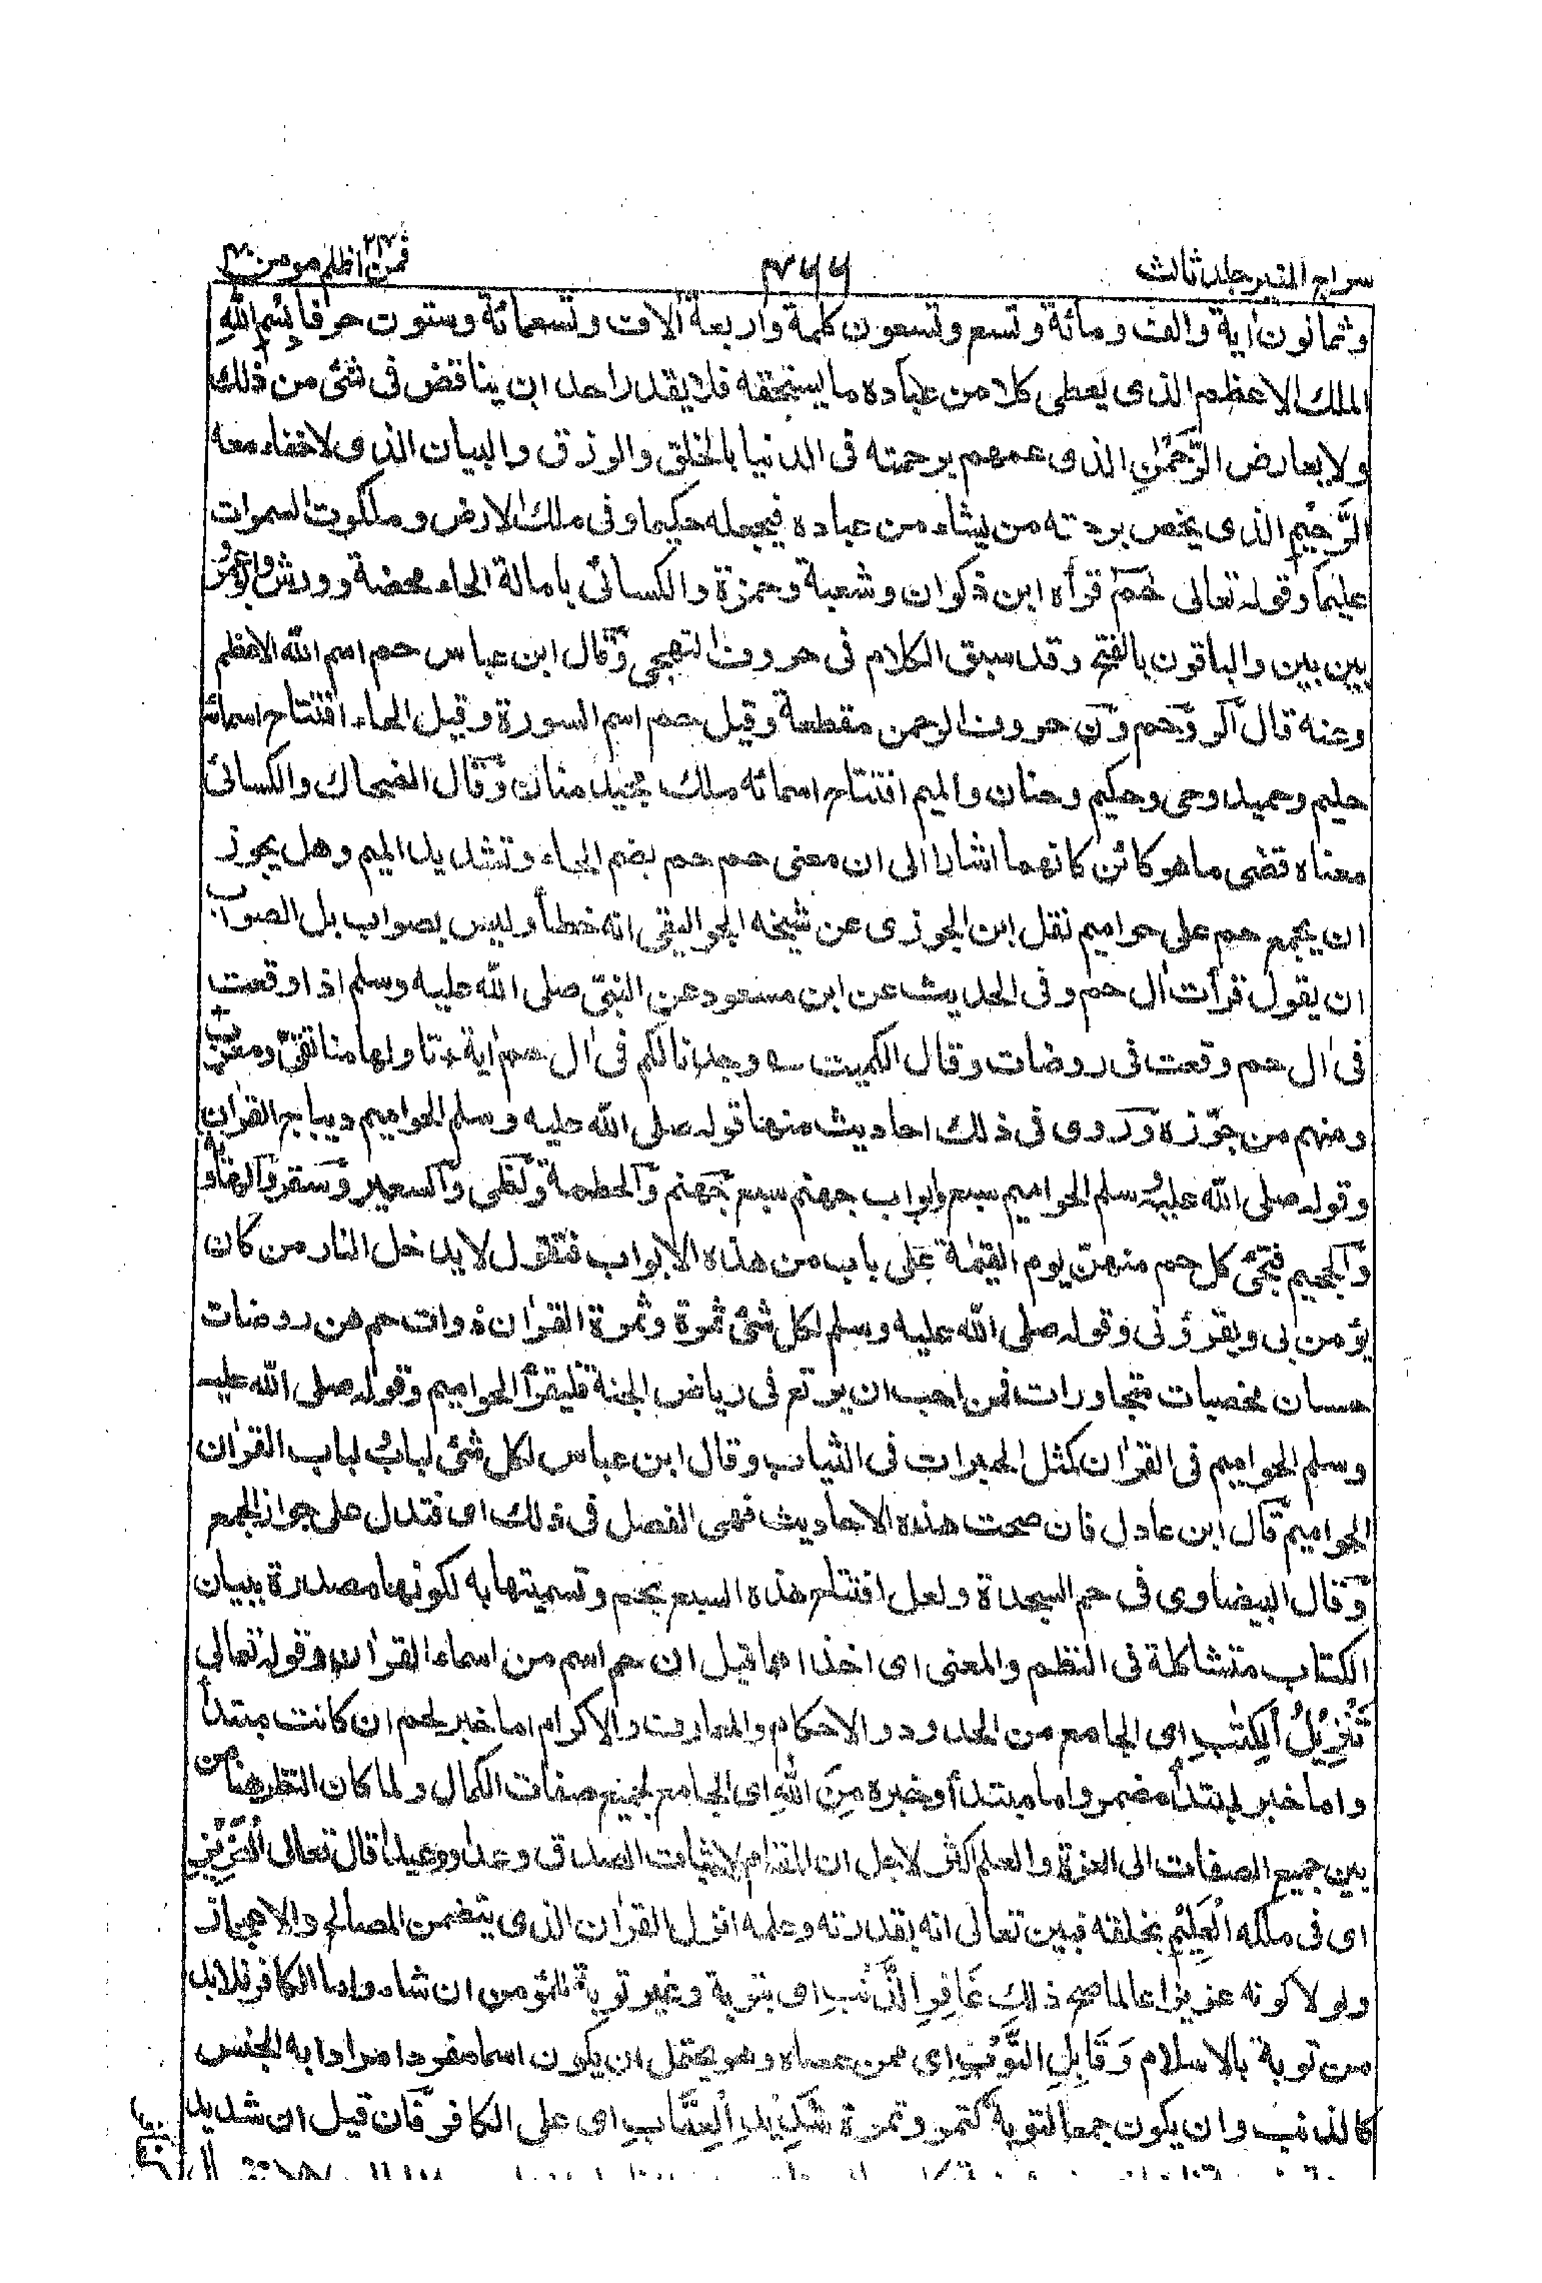 سراج المنير جلد ثالث
٤٦٦
فمن اظلم ٢٤ مومن ٤٠
وثمانون اٰية والف ومائة وتسع وتسعون كلمة واربعة اٰلاف وتسعمائة وستون حرفا بِسْمِ اللهِ
الملك الاعظم الذى يعطى كلا من عباده ما يستحقه فلا يقدر احد ان يناقض فى شئ من ذلك
ولا يعارض الرَّحْمٰنِ الذى عمهم برحمته فى الدنيا بالخلق والرزق والبيان الذى لاخفاء معه
الرَّحِيْمِ الذى يخص برحمته من يشاء من عباده فيجعله حكيما وفى ملك الارض وملكوت السموات
عليما وقوله تعالى حٰمٓ قرأه ابن ذكوان وشعبة وحمزة والكسائى بامالة الحاء محضة وورش وابو عمرو
بين بين والباقون بالفتح وقد سبق الكلام فى حروف التهجى وقال ابن عباس حم اسم الله الاعظم
وعنه قال الر وحم ون حروف الرحمن مقطعة وقيل حم اسم السورة وقيل الحاء افتتاح اسمائه
حليم وحميد وحى وحكيم وحنان والميم افتتاح اسمائه ملك مجيد منان وقال الضحاك والكسائى
معناه قضى ما هو كائن كانهما اشارا الى ان معنى حم حم بضم الحاء وتشديد الميم وهل يجوز
ان يجمع حم على حواميم نقل ابن الجوزى عن شيخه الجواليقى انه خطأ وليس بصواب بل الصواب
ان يقول قرأت اٰل حم وفى الحديث عن ابن مسعود عن النبىّ صلى الله عليه وسلم اذا وقعت
فى اٰل حم وقعت فى روضات وقال الكميت ؎ وجدنا لكم فى اٰل حم اٰية ٭ تاولها منا تقىّ ومعرب
ومنهم من جوّزه وروى فى ذلك احاديث منها قوله صلى الله عليه وسلم الحواميم ديباج القراٰن
وقوله صلى الله عليه وسلم الحواميم سبع وابواب جهنم سبع جهنم والحطمة ولظى والسعير وسقر والهاوية
والجحيم فتجئ كل حم منهن يوم القيٰمة على باب من هذه الابواب فتقول لا يدخل النار من كان
يؤمن بى ويقرؤنى وقوله صلى الله عليه وسلم لكل شئ ثمرة وثمرة القراٰن ذوات حم هن روضات
حسان مخصبات متجاورات فمن احب ان يرتع فى رياض الجنة فليقرأ الحواميم وقوله صلى الله عليه
وسلم الحواميم فى القراٰن كمثل الحبرات فى الثياب وقال ابن عباس لكل شئ لباب ولباب القراٰن
الحواميم قال ابن عادل فان صحت هذه الاحاديث فهى الفصل فى ذلك اى فتدل على جواز الجمع
وقال البيضاوى فى حم السجدة ولعل افتتاح هذه السبع بحم وتسميتها به لكونها مصدرة ببيان
الكتاب متشاكلة فى النظم والمعنى اى اخذا مما قيل ان حم اسم من اسماء القراٰن وقوله تعالى
تَنْزِيْلُ الْكِتٰبِ اى الجامع من الحدود والاحكام والمعارف والاكرام اما خبر لحم ان كانت مبتدأ
واما خبر لمبتدأ مضمر واما مبتدأ وخبره مِنَ اللهِ اى الجامع لجميع صفات الكمال ولما كان النظر هنا من
بين جميع الصفات الى العزة والعلم اكثر لاجل ان المقام لاثبات الصدق وعدا ووعيدا قال تعالى الْعَزِيْزِ
اى فى ملكه الْعَلِيْمِ بخلقه فبين تعالى انه بقدرته وعلمه انزل القراٰن الذى يتضمن المصالح والاعجاز
ولولا كونه عزيزا عالما صح ذلك غَافِرِ الذَّنْبِ اى بتوبة وغير توبة للمؤمن ان شاء واما الكافر فلابد
من توبة بالاسلام وَقَابِلِ التَّوْبِ اى ممن عصاه وهو يحتمل ان يكون اسما مفردا مرادا به الجنس
كالذنب وان يكون جمعا لتوبة كتمر وتمرة شَدِيْدِ الْعِقَابِ اى على الكافر فان قيل ان شديد